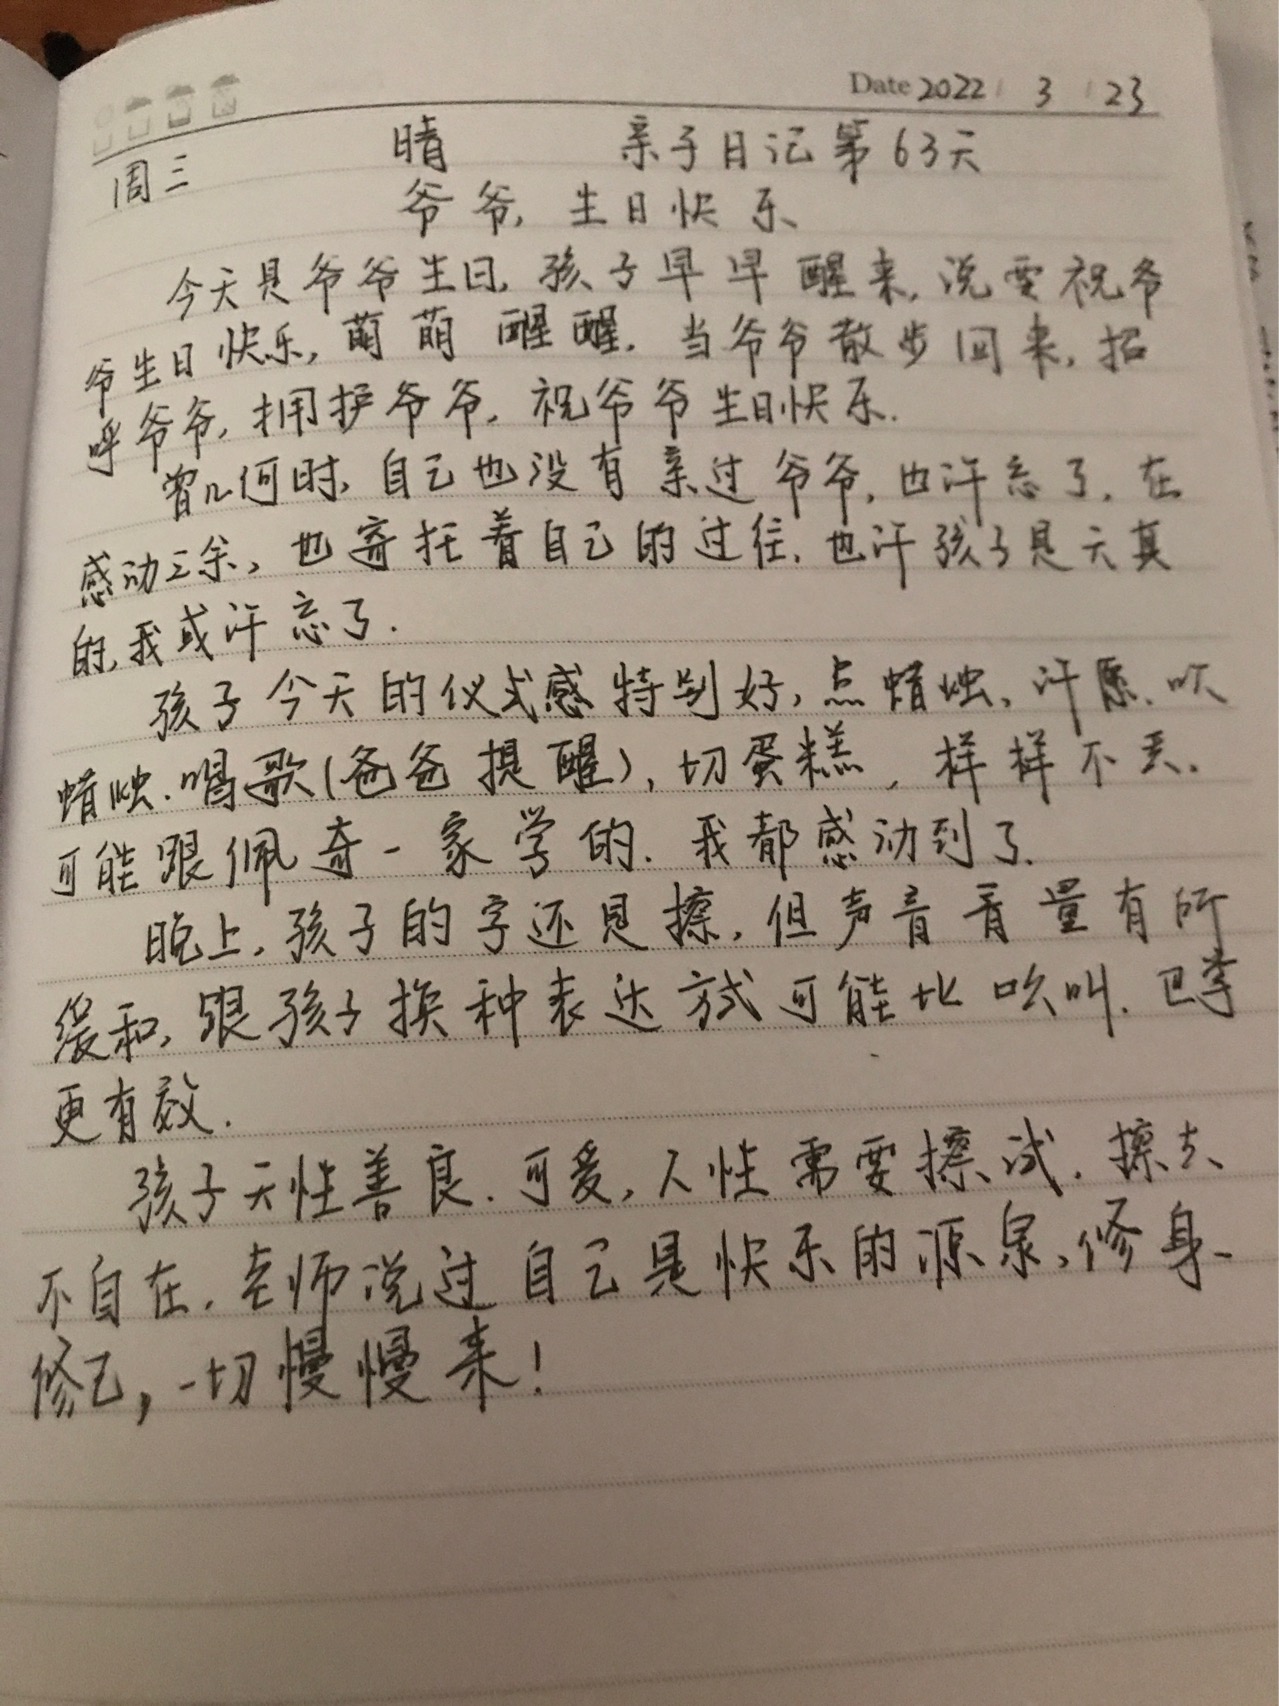 Date 2022 3 23
周三 晴 亲子日记第63天
爷爷，生日快乐
今天是爷爷生日，孩子早早醒来，说要祝爷
爷生日快乐，萌萌醒醒，当爷爷散步回来，招
呼爷爷，拥护爷爷，祝爷爷生日快乐.
曾几何时，自己也没有亲过爷爷，也许忘了，在
感动之余，也寄托着自己的过往，也许孩子是天真
的，我或许忘了.
孩子今天的仪式感特别好，点蜡烛、许愿、吹
蜡烛、唱歌(爸爸提醒)，切蛋糕，样样不丢.
可能跟佩奇一家学的. 我都感动到了.
晚上，孩子的字还是擦，但声音音量有所
缓和，跟孩子换种表达方式可能比吹叫、巴掌
更有效.
孩子天性善良、可爱，人性需要擦试，擦去
不自在. 老师说过自己是快乐的源泉，修身、
修己，一切慢慢来！